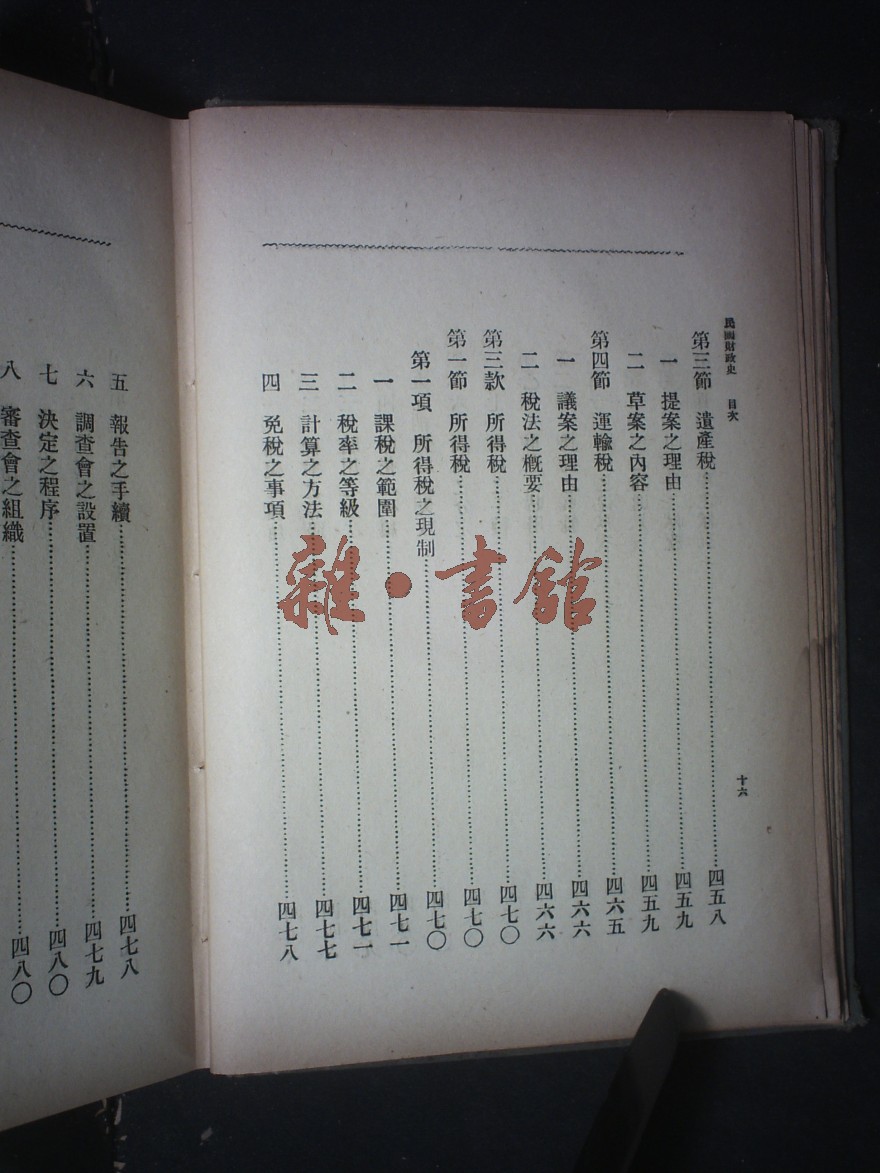 民國財政史　目次
十六
第三節　遺產稅……四五八
一　提案之理由……四五九
二　草案之內容……四五九
第四節　運輸稅……四六五
一　議案之理由……四六六
二　稅法之概要……四六六
第三款　所得稅……四七〇
第一節　所得稅……四七〇
第一項　所得稅之現制……四七〇
一　課稅之範圍……四七一
二　稅率之等級……四七一
三　計算之方法……四七七
四　免稅之事項……四七八
五　報告之手續……四七八
六　調查會之設置……四七九
七　決定之程序……四八〇
八　審查會之組織……四八〇
雜·書館